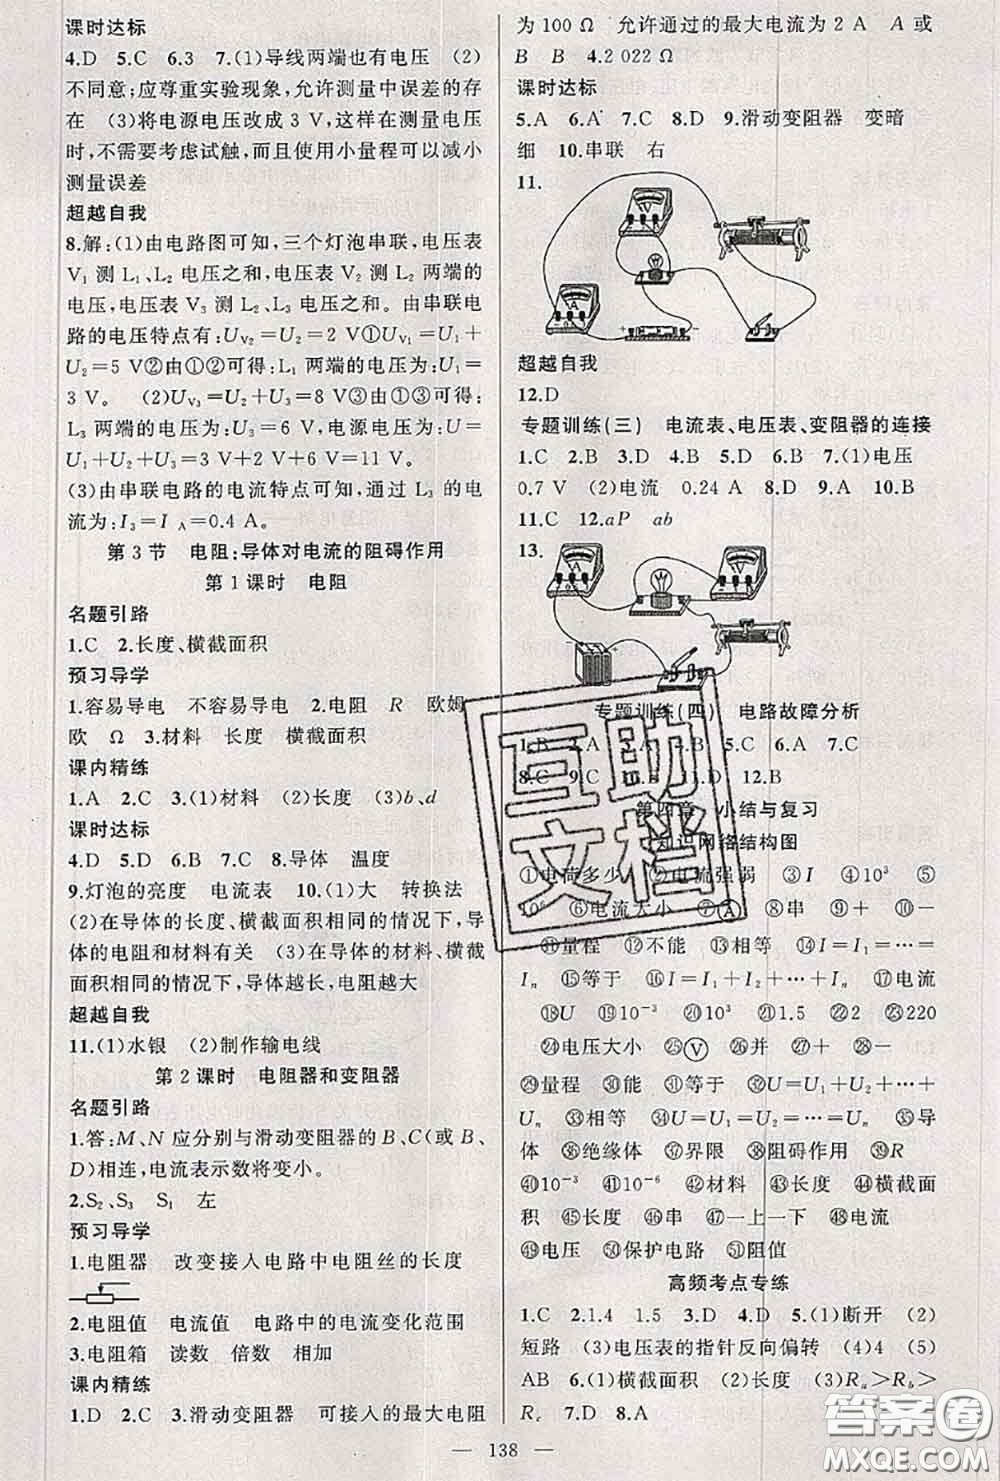 课时达标
4.D 5.C 6.3 7.(1)导线两端也有电压 (2)
不同意;应尊重实验现象,允许测量中误差的存
在 (3)将电源电压改成 3 V,这样在测量电压
时,不需要考虑试触,而且使用小量程可以减小
测量误差
超越自我
8.解:(1)由电路图可知,三个灯泡串联,电压表
V₁ 测 L₁、L₂ 电压之和,电压表 V₂ 测 L₂ 两端的
电压,电压表 V₃ 测 L₂、L₃ 电压之和。由串联电
路的电压特点有:U_V₂=U₂=2 V①U_V₁=U₁+
U₂=5 V②由①②可得:L₁ 两端的电压为:U₁=
3 V。 (2)U_V₃=U₂+U₃=8 V③由①③可得:
L₃ 两端的电压为:U₃=6 V,电源电压为:U=
U₁+U₂+U₃=3 V+2 V+6 V=11 V。
(3)由串联电路的电流特点可知,通过 L₃ 的电
流为:I₃=I_A=0.4 A。
第 3 节 电阻:导体对电流的阻碍作用
第 1 课时 电阻
名题引路
1.C 2.长度、横截面积
预习导学
1.容易导电 不容易导电 2.电阻 R 欧姆
欧 Ω 3.材料 长度 横截面积
课内精练
1.A 2.C 3.(1)材料 (2)长度 (3)b、d
课时达标
4.D 5.D 6.B 7.C 8.导体 温度
9.灯泡的亮度 电流表 10.(1)大 转换法
(2)在导体的长度、横截面积相同的情况下,导
体的电阻和材料有关 (3)在导体的材料、横截
面积相同的情况下,导体越长,电阻越大
超越自我
11.(1)水银 (2)制作输电线
第 2 课时 电阻器和变阻器
名题引路
1.答:M、N 应分别与滑动变阻器的 B、C(或 B、
D)相连,电流表示数将变小。
2.S₂、S₃ S₁ 左
预习导学
1.电阻器 改变接入电路中电阻丝的长度
2.电阻值 电流值 电路中的电流变化范围
3.电阻箱 读数 倍数 相加
课内精练
1.D 2.C 3.滑动变阻器 可接入的最大电阻
为 100 Ω 允许通过的最大电流为 2 A A 或
B B 4.2 022 Ω
课时达标
5.A 6.A 7.C 8.D 9.滑动变阻器 变暗
细 10.串联 右
11.
V
A
超越自我
12.D
专题训练(三) 电流表、电压表、变阻器的连接
1.C 2.B 3.D 4.D 5.D 6.B 7.(1)电压
0.7 V (2)电流 0.24 A 8.D 9.A 10.B
11.C 12.aP ab
13.
A
V
专题训练(四) 电路故障分析
1.B 2.A 3.A 4.B 5.C 6.A 7.C
8.C 9.C 10.B 11.D 12.B
第四章 小结与复习
知识网络结构图
①电荷多少 ②电流强弱 ③I ④10³ ⑤
10⁶ ⑥电流大小 ⑦Ⓐ ⑧串 ⑨+ ⑩-
⑪量程 ⑫不能 ⑬相等 ⑭I=I₁=I₂=…=
Iₙ ⑮等于 ⑯I=I₁+I₂+…+Iₙ ⑰电流
⑱U ⑲10⁻³ ⑳10³ ㉑1.5 ㉒2 ㉓220
㉔电压大小 ㉕Ⓥ ㉖并 ㉗+ ㉘-
㉙量程 ㉚能 ㉛等于 ㉜U=U₁+U₂+…+
Uₙ ㉝相等 ㉞U=U₁=U₂=…=Uₙ ㉟导
体 ㊱绝缘体 ㊲界限 ㊳阻碍作用 ㊴R
㊵10⁻³ ㊶10⁻⁶ ㊷材料 ㊸长度 ㊹横截面
积 ㊺长度 ㊻串 ㊼一上一下 ㊽电流
㊾电压 ㊿保护电路 51阻值
高频考点专练
1.C 2.1.4 1.5 3.D 4.D 5.(1)断开 (2)
短路 (3)电压表的指针反向偏转 (4)4 (5)
AB 6.(1)横截面积 (2)长度 (3)Rₐ>R_b>
R_c 7.D 8.A
— 138 —
互助
文档
答案圈
MXQE.COM